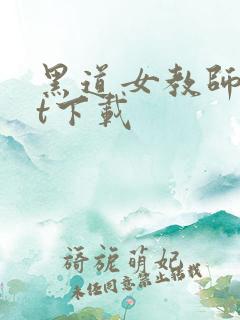 黑道女教師
t下載
旖旎萌妃
未经同意禁止转载